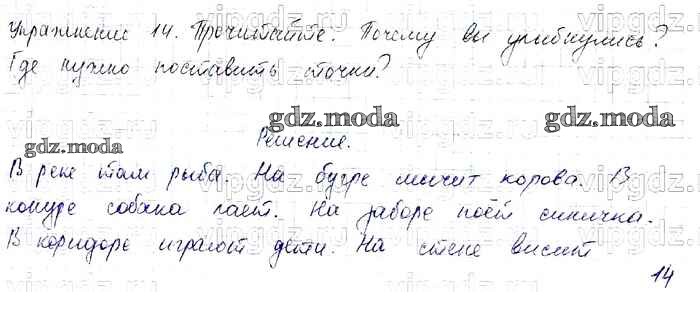 vipgdz.ru vipgdz.ru vipgdz.ru vipgdz.ru
Упражнение 14. Прочитайте. Почему вы улыбнулись?
Где нужно поставить точки?
gdz.moda gdz.moda gdz.moda
Решение.
В реке там рыба. На бугре мычит корова. В
конуре собака лает. На заборе поёт синичка.
В коридоре играют дети. На стене висит
14